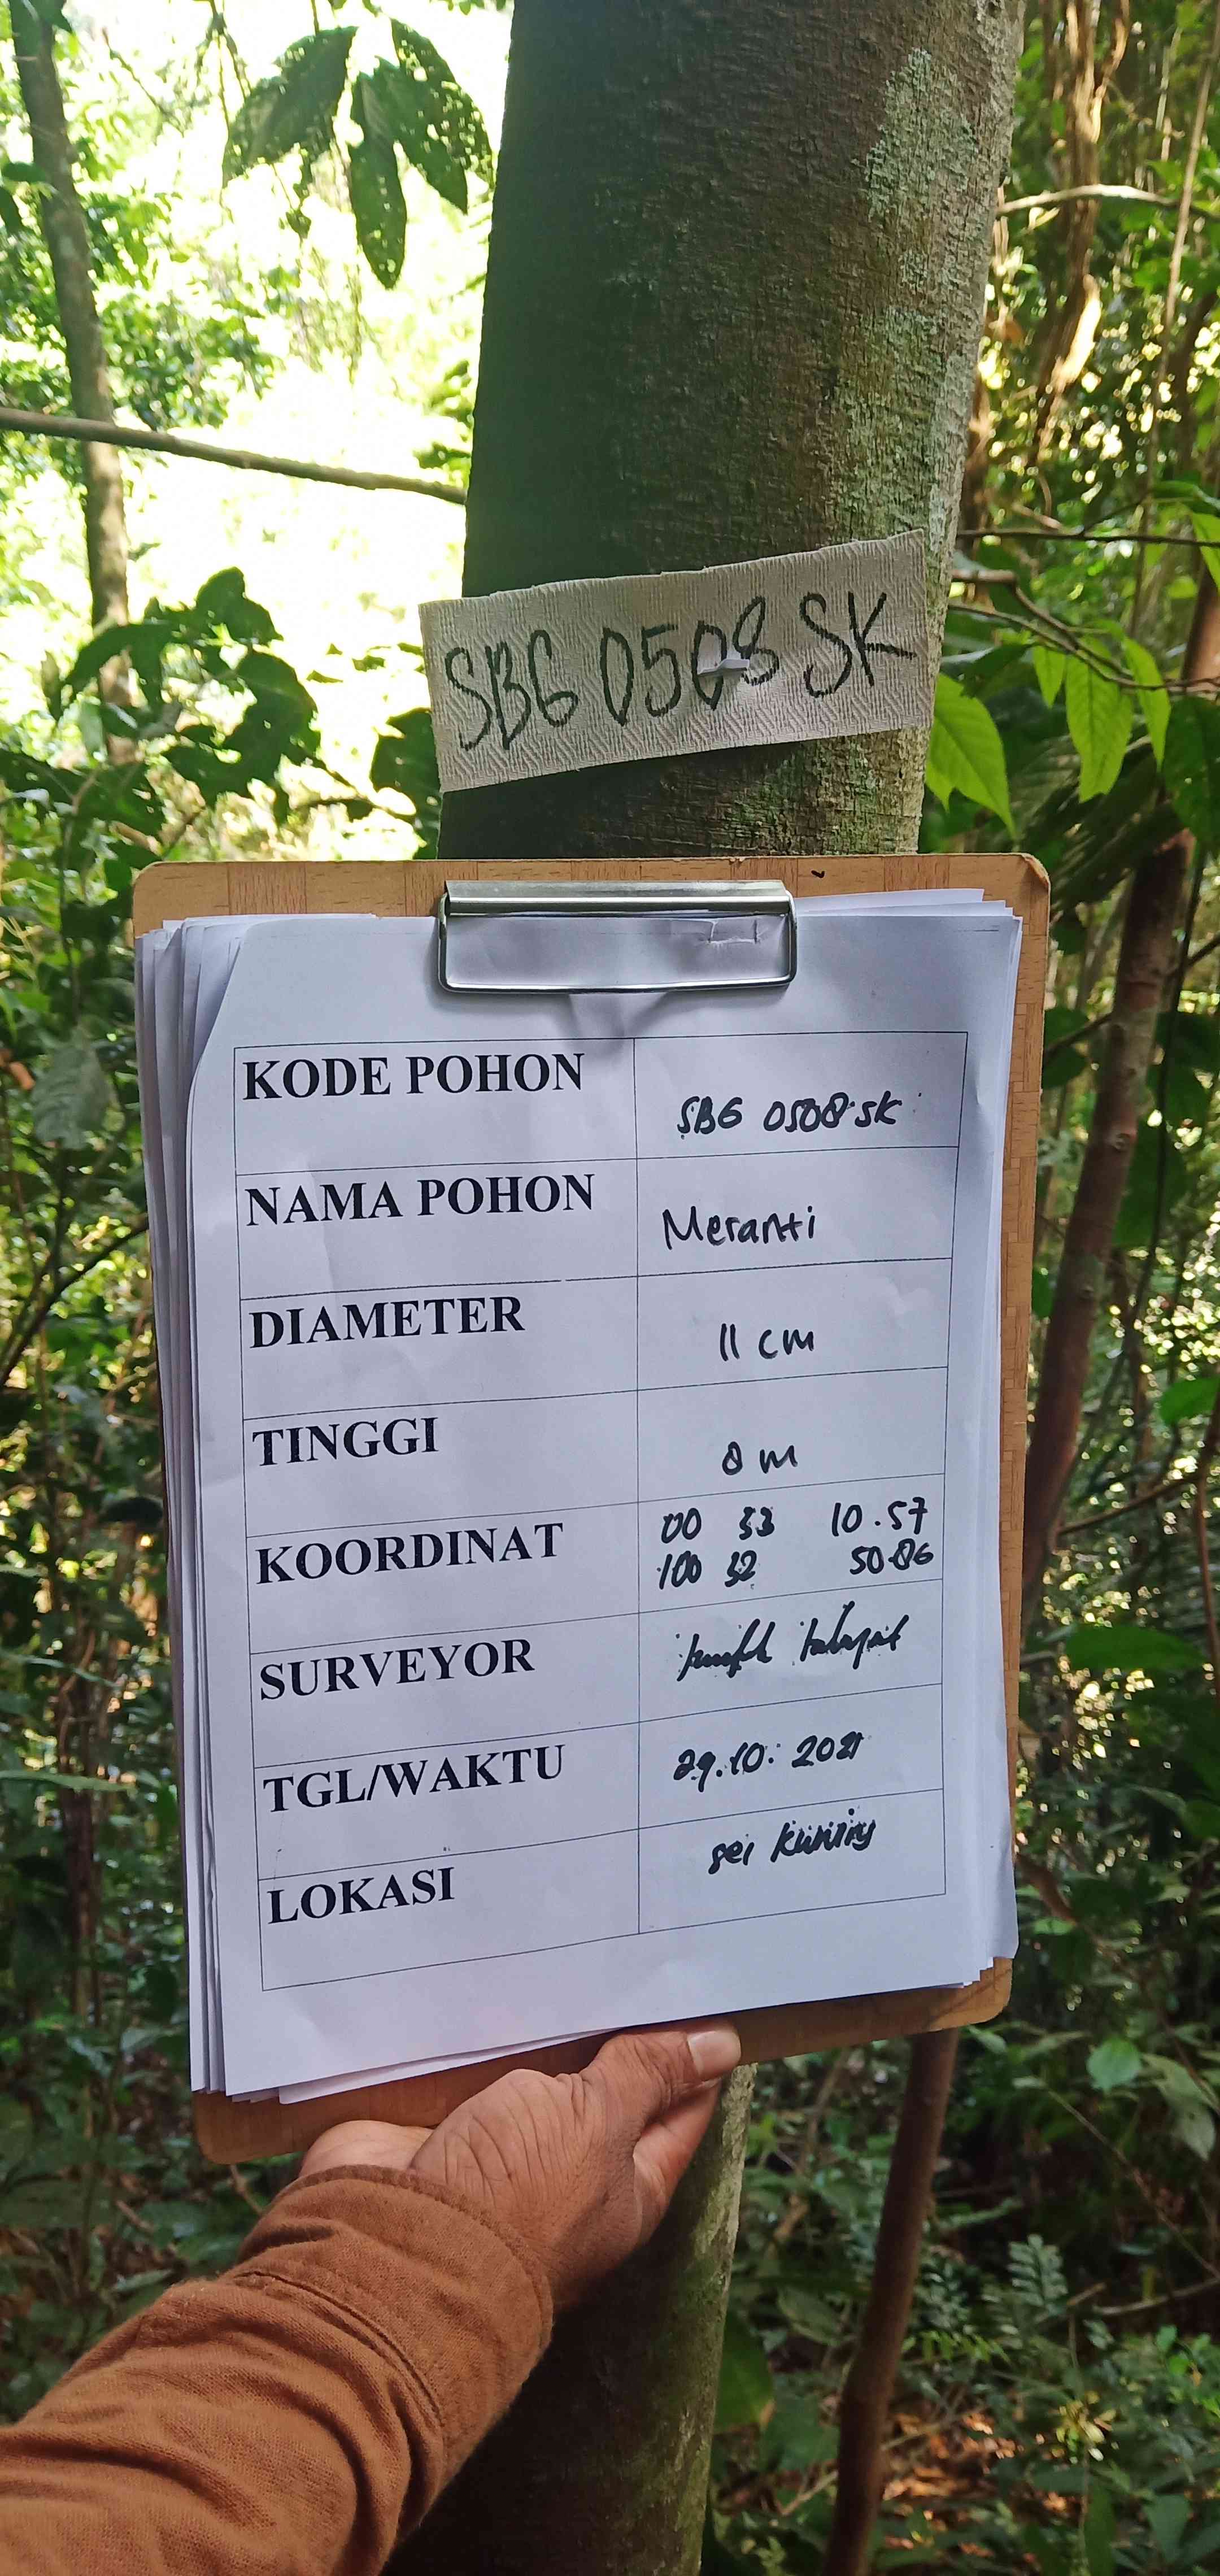 SBG 0508 SK
KODE POHON
SBG 0508 SK
NAMA POHON
Meranti
DIAMETER
11 cm
TINGGI
8 m
KOORDINAT
00 33 10.57
100 32 50.86
SURVEYOR
TGL/WAKTU
29.10. 2021
LOKASI
sei Kuning